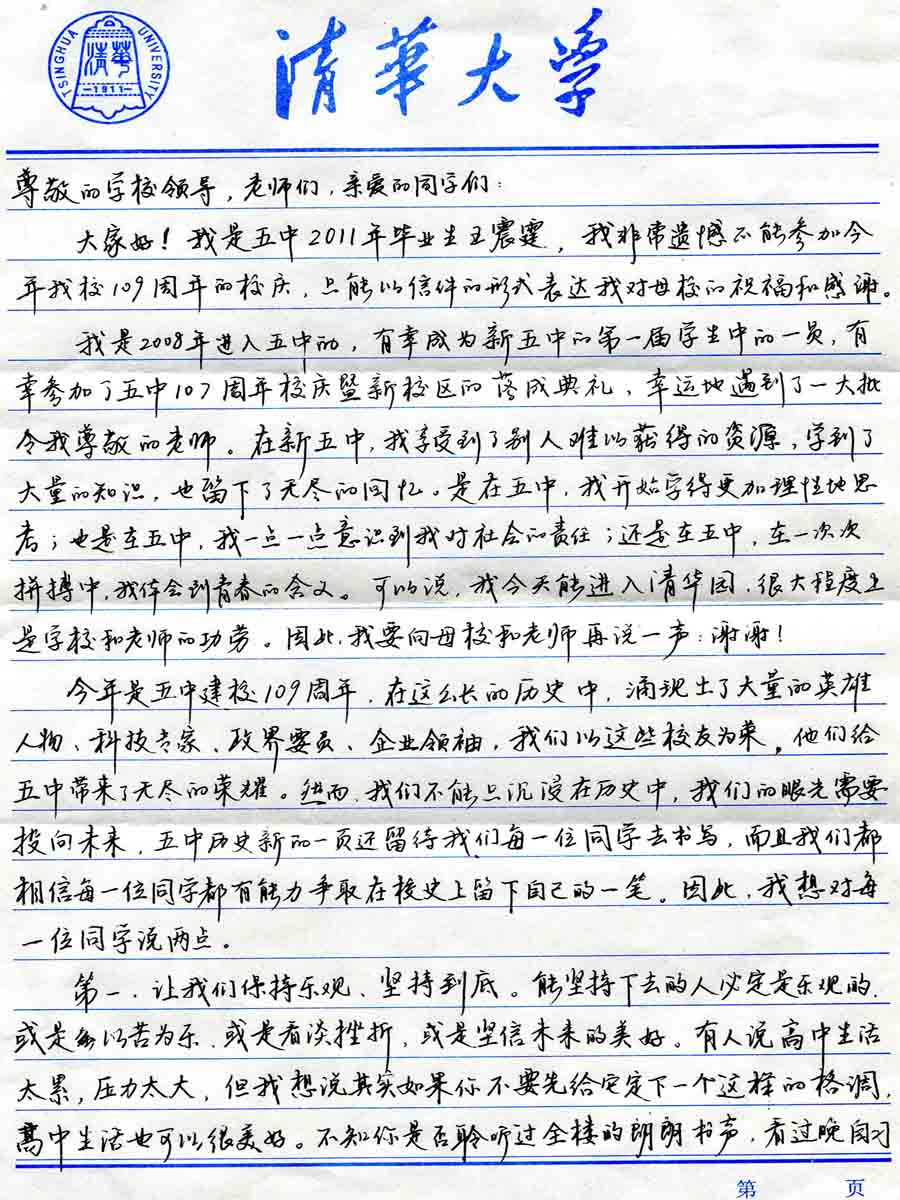 TSINGHUA UNIVERSITY
清華
—1911—
清華大学
尊敬的学校领导，老师们，亲爱的同学们：
大家好！我是五中2011年毕业生王震霆，我非常遗憾不能参加今
年我校109周年的校庆，只能以信件的形式表达我对母校的祝福和感谢。
我是2008年进入五中的，有幸成为新五中的第一届学生中的一员，有
幸参加了五中107周年校庆暨新校区的落成典礼，幸运地遇到了一大批
令我尊敬的老师。在新五中，我享受到了别人难以获得的资源，学到了
大量的知识，也留下了无尽的回忆。是在五中，我开始学得更加理性地思
考；也是在五中，我一点一点意识到我对社会的责任；还是在五中，在一次次
拼搏中，我体会到青春的含义。可以说，我今天能进入清华园，很大程度上
是学校和老师的功劳。因此，我要向母校和老师再说一声：谢谢！
今年是五中建校109周年，在这么长的历史中，涌现出了大量的英雄
人物、科技专家、政界要员、企业领袖，我们以这些校友为荣，他们给
五中带来了无尽的荣耀。然而，我们不能只沉浸在历史中，我们的眼光需要
投向未来，五中历史新的一页还留待我们每一位同学去书写，而且我们都
相信每一位同学都有能力争取在校史上留下自己的一笔。因此，我想对每
一位同学说两点。
第一，让我们保持乐观、坚持到底。能坚持下去的人必定是乐观的，
或是以苦为乐，或是看淡挫折，或是坚信未来的美好。有人说高中生活
太累，压力太大，但我想说其实如果你不要先给它定下一个这样的格调，
高中生活也可以很美好。不知你是否聆听过全楼的朗朗书声，看过晚自习
第 页